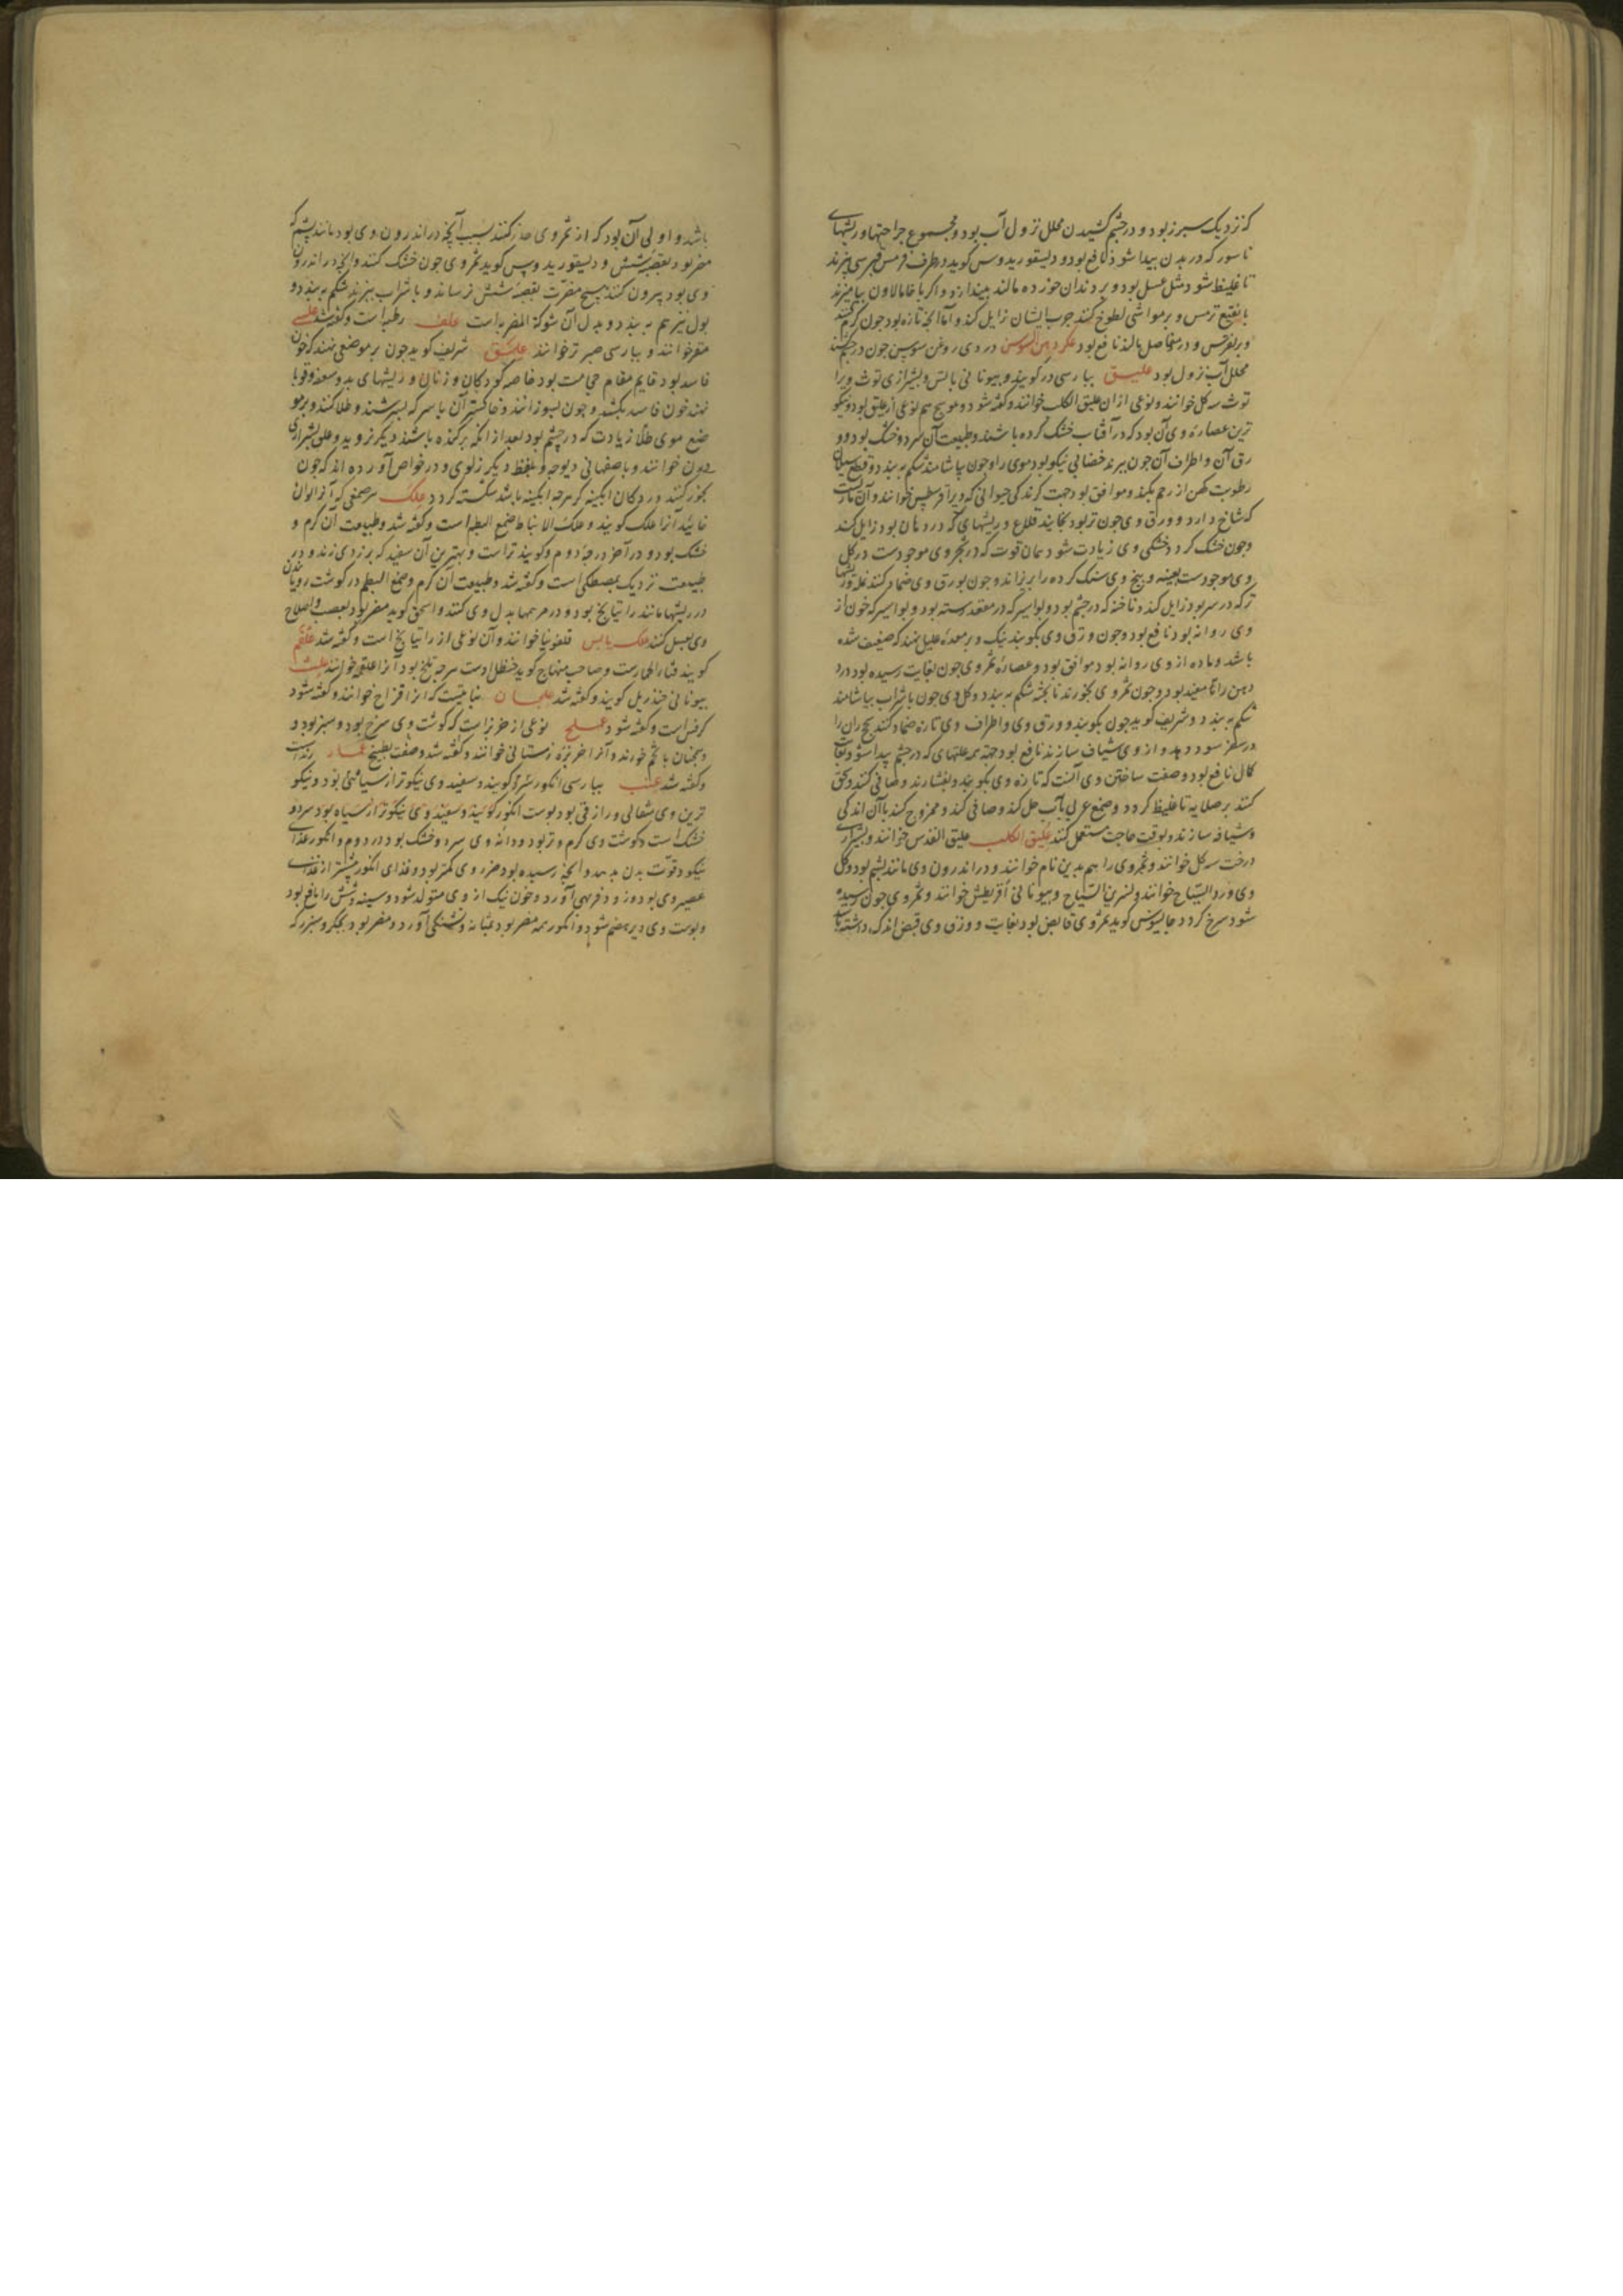 که نزدیک سبرز بود و در چشم کشیدن محلل نزول آب بود و مجموع جراحتها و ریشهای
ناسور که در بدن پیدا شود نافع بود و دیسقوریدوس گوید در ظرف مس قبرسی بپزند
تا غلیظ شود مثل عسل بود و بر دندان خورده مالند بیندازد و اگر با خامالاون بیامیزند
با نقیع ترمس و بر مواشی لطوخ کنند جرب ایشان زایل کند و اما آنچه تازه بود چون گرم کنند
و بر نقرس و در مفاصل مالند نافع بود عکر دهن السوسن دردی روغن سوسن چون در چشم کشند
محلل آب نزول بود علیق بپارسی در گویند و بیونانی باتس و بشیرازی توث ویرا
توث سه گل خوانند و نوعی از ان علیق الکلب خوانند و گفته شود و عوسج هم نوعی از علیق بود و نیکو
ترین عصاره وی آن بود که در آفتاب خشک کرده باشند و طبیعت آن سرد و خشک بود و و
رق آن و اطراف آن چون ببرند خضابی نیکو بود موی را و چون بیاشامند شکم ببندد و قطع سیلان
رطوبت کهن از رحم بکند و موافق بود جهت گزندگی حیوانی که ویرا فرسطس خوانند و آن ماریست
که شاخ دارد و ورق وی چون تر بود بخایند قلاع و ریشهای که در دهان بود زایل کند
و چون خشک گردد خشکی وی زیادت شود همان قوت که در ثمر وی موجودست در گل
وی موجودست بعینه و بیخ وی سنگ گرده را بریزاند و چون بورق وی ضماد کنند نمله و ریشهای
تر که در سر بود زایل کند و ناخنه که در چشم بود و بواسیر که در مقعد رسته بود و بواسیر که خون از
وی روانه بود نافع بود و چون ورق وی بکوبند نیک و بر معده علیل نهند که ضعیف شده
باشد و ماده از وی روانه بود موافق بود و عصاره ثمر وی چون بغایت رسیده بود درد
دهن را مفید بود و چون ثمر وی بخورند نابخته شکم ببندد و گل وی چون با شراب بیاشامند
شکم ببندد و شریف گوید چون بکوبند و ورق وی و اطراف وی تازه ضماد کنند بحران را
در سفر سود دهد و از وی شیاف سازند نافع بود جهة همه علتهای که در چشم پیدا شود بغایت
کمال نافع بود و صفت ساختن وی آنست که تازه وی بکوبند و بفشارند و صافی کنند و سحق
کنند بر صلایه تا غلیظ گردد و صمغ عربی بآب حل کند و صافی کند و ممزوج کند با آن اندکی
و شیافه سازند و بوقت حاجت مستعمل کنند علیق الکلب علیق القدس خوانند و بشیرازی
درخت سه گل خوانند و ثمر وی را هم بدین نام خوانند و در اندرون وی مانند پشم بود و گل
وی ورد السیاج خوانند و نسرین السیاج و بیونانی اقریطش خوانند و ثمر وی چون رسیده
شود سرخ گردد جالینوس گوید ثمر وی قابض بود بغایت و ورق وی قبض اندک داشته
باشد و اولی آن بود که از ثمر وی حذر کنند بسبب آنچه در اندرون وی بود مانند پشم که
مضر بود بقصبه شش و دیسقوریدوس گوید ثمر وی چون خشک کنند و آنچه در اندرون
وی بود بیرون کنند هیچ مضرت بقصبه شش نرساند و با شراب بپزند شکم ببندد و
بول نیز هم ببندد و بدل آن شوکة المغربه است علف رطبه است و گفته شد علسی
مقر خوانند و بپارسی صبر تر خوانند علیق شریف گوید چون بر موضعی نهند که خون
فاسد بود قایم مقام حجامت بود خاصه کودکان و زنان و ریشهای بد و سعفه و قوبا
نهند خون فاسد بکشد و چون بسوزانند و خاکستر آن با سرکه بسرشند و طلا کنند و بر مو
ضع موی طلا زیادت که در چشم بود بعد از آنکه برکنده باشند دیگر نروید و علق بشیرازی
دون خوانند و باصفهانی دیوجه و بلفظ دیگر زلوی و در خواص آورده اند که چون
بخور کنند در دکان آبگینه گر هرچه آبگینه باشد شکسته گردد علک هر صمغی که آنرا الوان
خائید آنرا علک گویند و علک الانباط صمغ البطم است و گفته شد و طبیعت آن گرم و
خشک بود و در آخر درجه دوم و گویند تر است و بهترین آن سفید که بزردی زند و در
طبیعت نزدیک بمصطکی است و گفته شد و طبیعت آن گرم و صمغ البطم در گوشت رویانیدن
در ریشها مانند راتیانج بود و در مرهمها بدل وی کنند و اسحق گوید مضر بود بعصب و اصلاح
وی بعسل کنند علک یابس قلفونیا خوانند و آن نوعی از راتیانج است و گفته شد علقم
گویند قثاء الحمارست و صاحب منهاج گوید حنظل اوست هرچه تلخ بود آنرا علقم خوانند علث
بیونانی خندریل گویند و گفته شد علجان نباتیست که آنرا اقراح خوانند و گفته شود
کرفس است و گفته شود عملج نوعی از خربزه است که گوشت وی سرخ بود و سبز بود و
همچنان با تخم خورند و آنرا خربزه زمستانی خوانند و گفته شد و صفت بطیخ عمار رند است
و گفته شد عنب بپارسی انگور سرخ گویند و سفید وی نیکوتر از سیاهی بود و نیکو
ترین وی مثقالی و رازقی بود پوست انگور گویند و سفید وی نیکوتر از سیاه بود سرد و
خشک است و گوشت وی گرم و تر بود و دانه وی سرد و خشک بود در دوم و انگور غذای
نیکو و قوت بدن بدهد و آنچه رسیده بود ضرر وی کمتر بود و غذای انگور بیشتر از غذای
عصیر وی بود و زود فربهی آورد و خون نیک از وی متولد شود و سینه و شش را نافع بود
و پوست وی دیر هضم شود و انگور همه مضر بود بمثانه و تشنگی آورد و مضر بود بجگر و سبرز که